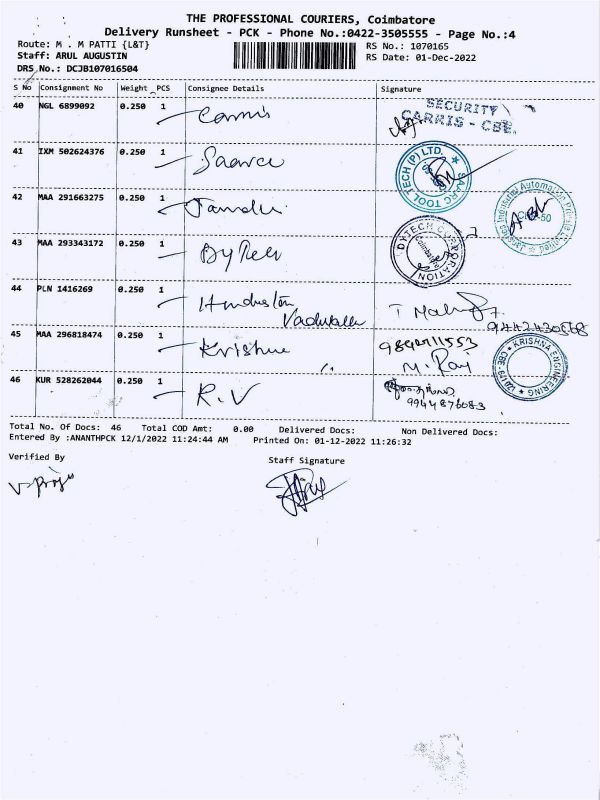 THE PROFESSIONAL COURIERS, Coimbatore
Delivery Runsheet - PCK - Phone No.:0422-3505555 - Page No.:4
Route: M . M PATTI {L&T}
RS No.: 1070165
Staff: ARUL AUGUSTIN
RS Date: 01-Dec-2022
DRS No.: DCJB107016504
S No Consignment No Weight PCS Consignee Details Signature
40 NGL 6899092 0.250 1 Carris
SECURITY
CARRIS - CBE.
41 IXM 502624376 0.250 1 Saarce
SAARC TOOL TECH (P) LTD.
42 MAA 291663275 0.250 1
43 MAA 293343172 0.250 1 Dytech
DYTECH CORPORATION
Coimbatore
44 PLN 1416269 0.250 1 Hindustan
45 MAA 296818474 0.250 1 Krishna
M. Raj
KRISHNA ENGINEERING
46 KUR 528262044 0.250 1 R.V
9944876083
Total No. Of Docs: 46 Total COD Amt: 0.00 Delivered Docs: Non Delivered Docs:
Entered By :ANANTHPCK 12/1/2022 11:24:44 AM Printed On: 01-12-2022 11:26:32
Verified By Staff Signature